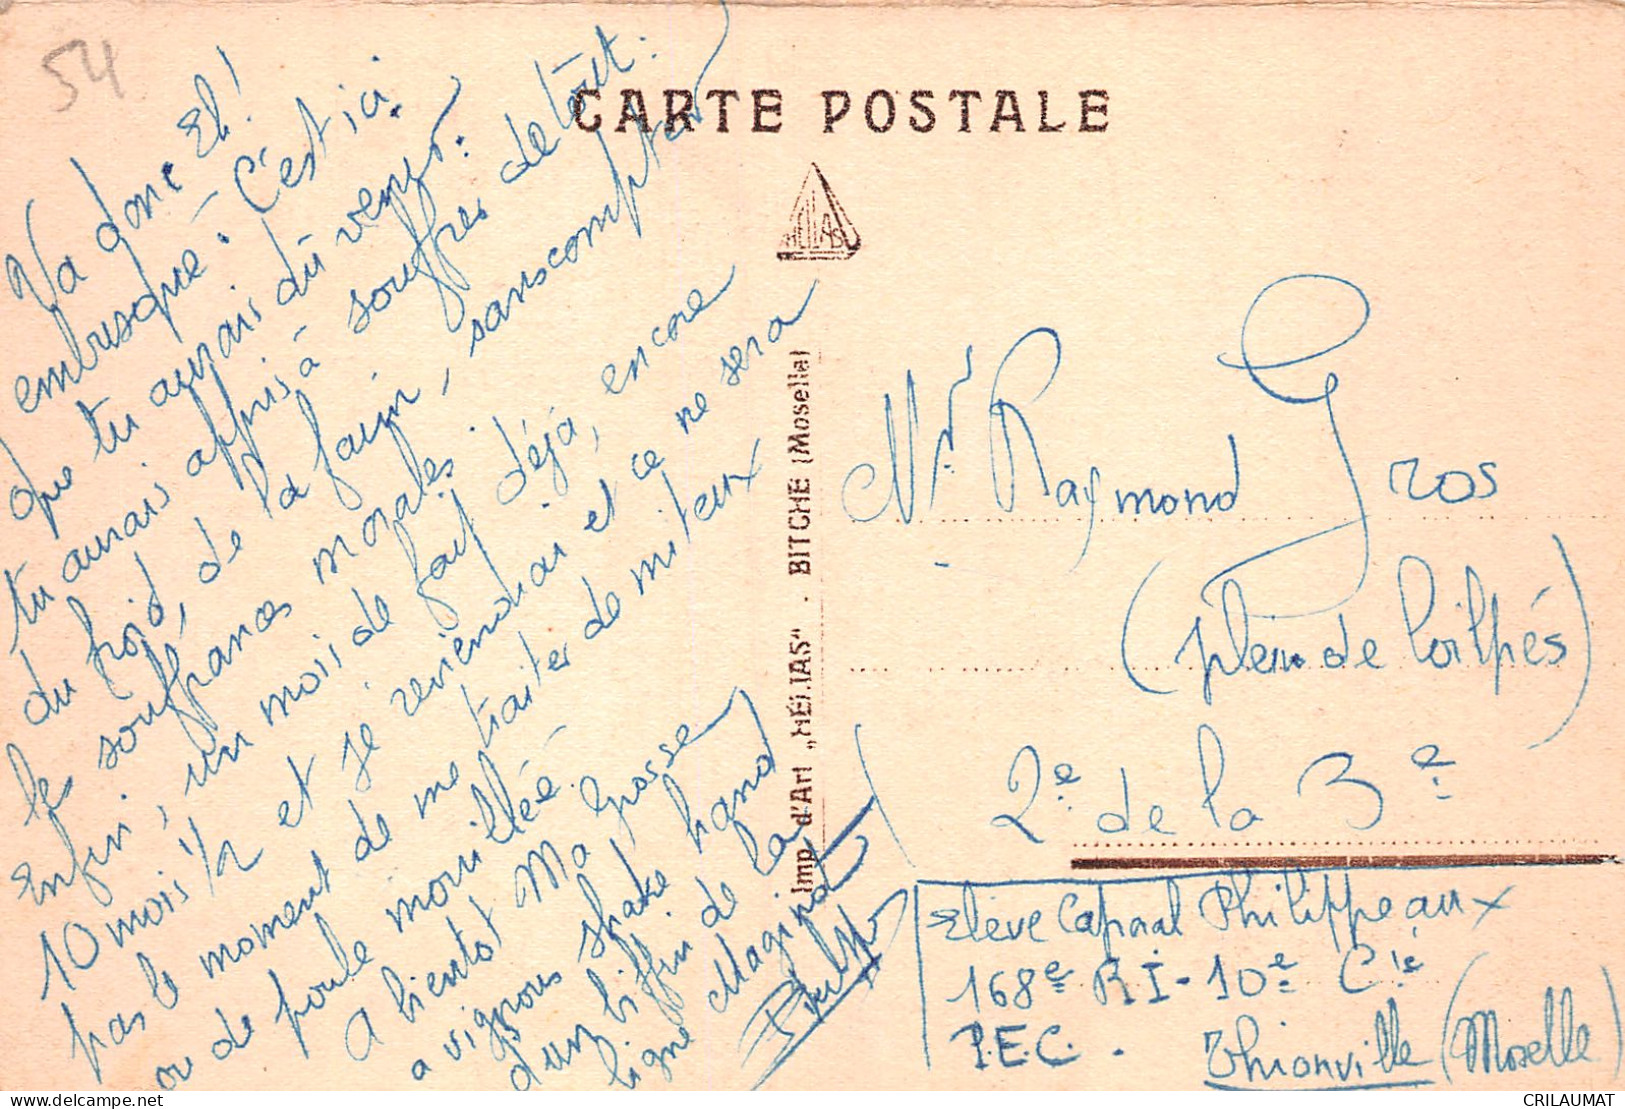 54
CARTE POSTALE
HELIAS
Va donc Eh!
embusqué! C'est ici
que tu aurais dû venir.
tu aurais appris à souffrir de tout:
du froid, de la faim, sans compter
les souffrances morales.
Enfin, un mois de fait déjà, encore
10 mois 1/2 et je reviendrai et ce ne sera
pas le moment de me traiter de miteux
ou de poule mouillée.
A bientot Ma Grosse
a vignous shake hand
d'un biffin de la
ligne Maginot
Imp. d'Art „HÉLIAS" . BITCHE (Moselle)
Mr Raymond Gros
(plein de Poilpés)
2e de la 3e
Elève Caporal Philippeaux
168e R.I - 10e Cie
P.E.C. . Thionville (Moselle)
CRILAUMAT